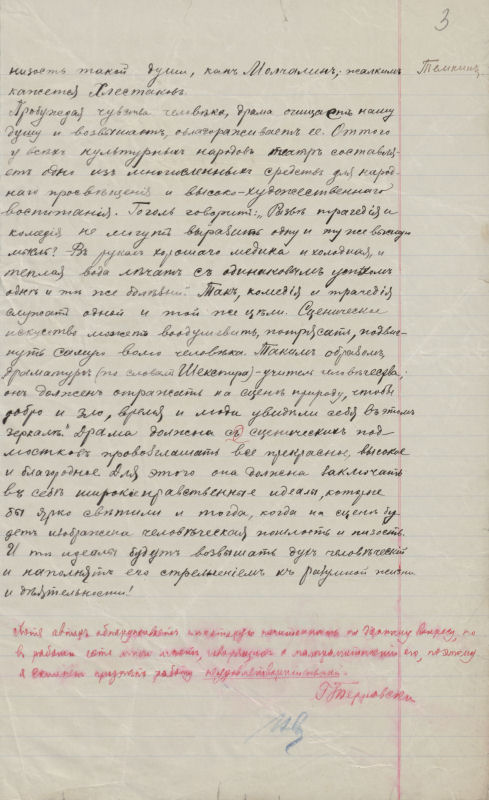 3
Темкинъ
низость такой души, какъ Молчалинъ; жалкимъ
кажется Хлестаковъ.
Пробуждая чувства человѣка, драма очищаетъ нашу
душу и возвышаетъ, облагораживаетъ ее. Оттого
у всѣхъ культурныхъ народовъ театръ составля-
етъ одно изъ многочисленныхъ средствъ для народ-
наго просвѣщенія и высоко-художественнаго
воспитанія. Гоголь говоритъ: „Развѣ трагедія и
комедія не могутъ выразить одну и ту же высшую
мысль? Въ рукахъ хорошаго медика и холодная, и
теплая вода лѣчатъ съ одинаковымъ успѣхомъ
однѣ и тѣ же болѣзни". Такъ, комедія и трагедія
служатъ одной и той же цѣли. Сценическое
искусство можетъ воодушевить, потрясать, подвиг-
нуть самую волю человѣка. Такимъ образомъ,
драматургъ (по словамъ Шекспира) - учитель человѣчества;
онъ долженъ отражать на сценѣ природу, чтобы
добро и зло, время и люди увидили себя въ этомъ
зеркалѣ." Драма должна съ сценическихъ под-
мостковъ провозглашать все прекрасное, высокое
и благородное. Для этого она должна заключать
въ себѣ широкіе нравственные идеалы, которые
бы ярко свѣтили и тогда, когда на сценѣ бу-
детъ изображена человѣческая пошлость и низость.
И тѣ идеалы будутъ возвышать духъ человѣческій
и наполнять его стремленіемъ къ разумной жизни
и дѣятельности!
Хотя авторъ обнаруживаетъ некоторую начитанность по данному вопросу, но
въ работѣ поэтому
я склоненъ признать работу неудовлетворительной.